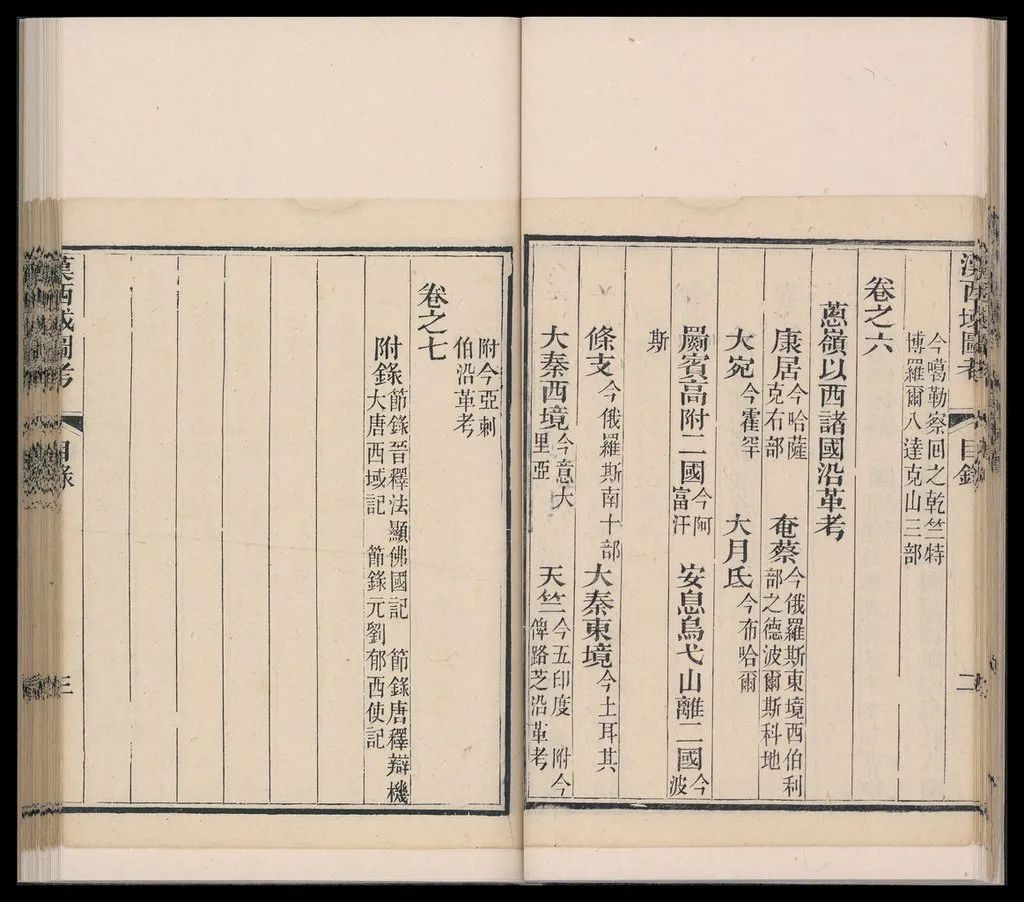 漢西域圖考 目錄 二
今噶勒察回之乾竺特
博羅爾八達克山三部
卷之六
蔥嶺以西諸國沿革考
康居 今哈薩克右部 奄蔡 今俄羅斯東境西伯利部之德波爾斯科地
大宛 今霍罕 大月氏 今布哈爾
罽賓高附二國 今阿富汗 安息烏弋山離二國 今波
斯
條支 今俄羅斯南十部 大秦東境 今土耳其
大秦西境 今意大里亞 天竺 今五印度 附今俾路芝沿革考
附今亞剌
伯沿革考
卷之七
附錄 節錄晉釋法顯佛國記 節錄唐釋辯機
大唐西域記 節錄元劉郁西使記
漢西域圖考 目錄 三